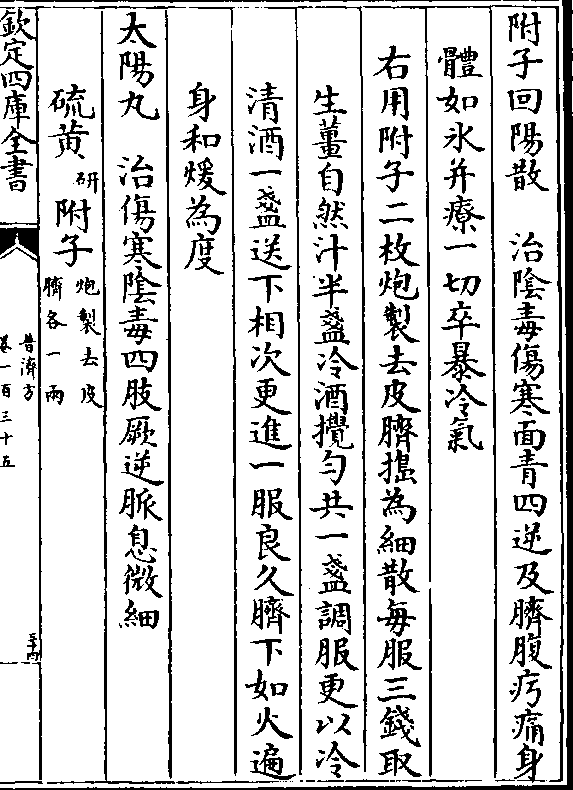 附子回陽散　治陰毒傷寒面青四逆及臍腹疞痛身
體如氷并療一切卒暴冷氣
右用附子二枚炮製去皮臍搗為細散每服三錢取
生薑自然汁半盞冷酒攪勻共一盞調服更以冷
清酒一盞送下相次更進一服良久臍下如火遍
身和煖為度
太陽丸　治傷寒陰毒四肢厥逆脈息微細
硫黃研　附子炮製去皮臍各一兩
欽定四庫全書
普濟方
卷一百三十五
三十四